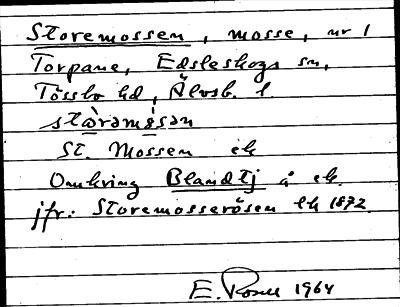 Storemossen, mosse, nr 1
Torpane, Edsleskogs sn,
Tössbo hd, Älvsb. l.
stòramåsan
St. Mossen ek
Omkring Blandtj å ek.
jfr: Storemosseråsen ek 1872.
E. Rosell 1964